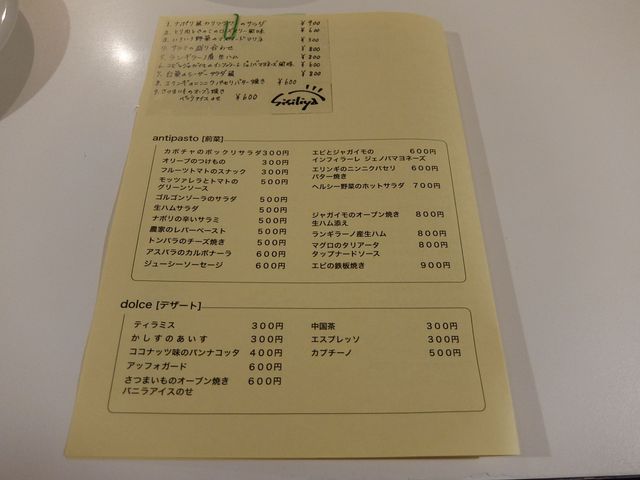 1. ナポリ風カリフラワーのサラダ ¥900
¥600
¥500
4. サラミの盛り合わせ ¥800
5. ランギラーノ産生ハム ¥800
¥600
7. 白菜のシーザーサラダ風 ¥800
8. エリンギのニンニクパセリバター焼き ¥600
9. さつまいものオーブン焼き
バニラアイスのせ ¥600
Siciliya
antipasto [前菜]
カボチャのポックリサラダ 300円
オリーブのつけもの 300円
フルーツトマトのスナック 300円
モッツァレラとトマトの 500円
グリーンソース
ゴルゴンゾーラのサラダ 500円
生ハムサラダ 500円
ナポリの辛いサラミ 500円
農家のレバーペースト 500円
トンバラのチーズ焼き 500円
アスパラのカルボナーラ 600円
ジューシーソーセージ 600円
エビとジャガイモの 600円
インフィラーレ ジェノバマヨネーズ
エリンギのニンニクパセリ 600円
バター焼き
ヘルシー野菜のホットサラダ 700円
ジャガイモのオーブン焼き 800円
生ハム添え
ランギラーノ産生ハム 800円
マグロのタリアータ 800円
タップナードソース
エビの鉄板焼き 900円
dolce [デザート]
ティラミス 300円
かしすのあいす 300円
ココナッツ味のパンナコッタ 400円
アッフォガード 600円
さつまいものオーブン焼き 600円
バニラアイスのせ
中国茶 300円
エスプレッソ 300円
カプチーノ 500円